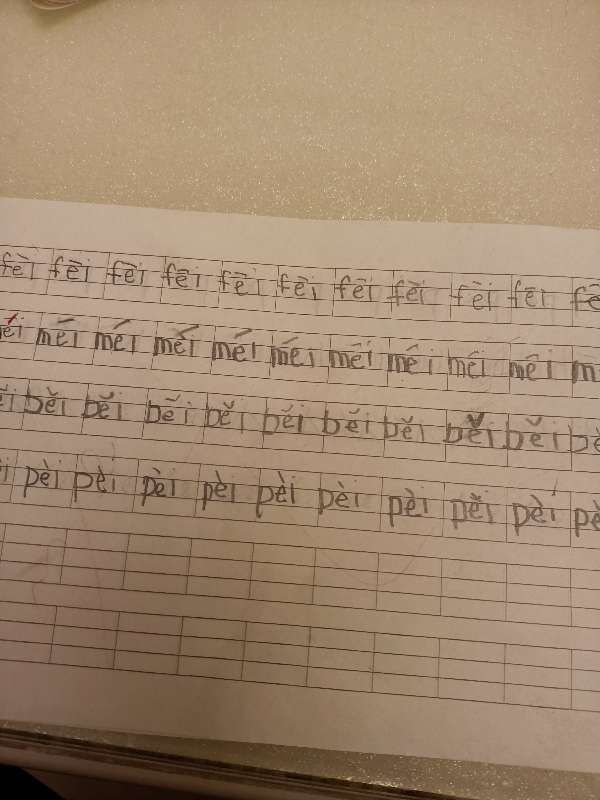 fēi fēi fēi fēi fēi fēi fēi fēi fēi fēi fē
méi méi méi méi méi méi méi méi méi méi m
běi běi běi běi běi běi běi běi běi běi bě
pèi pèi pèi pèi pèi pèi pèi pěi pèi pè